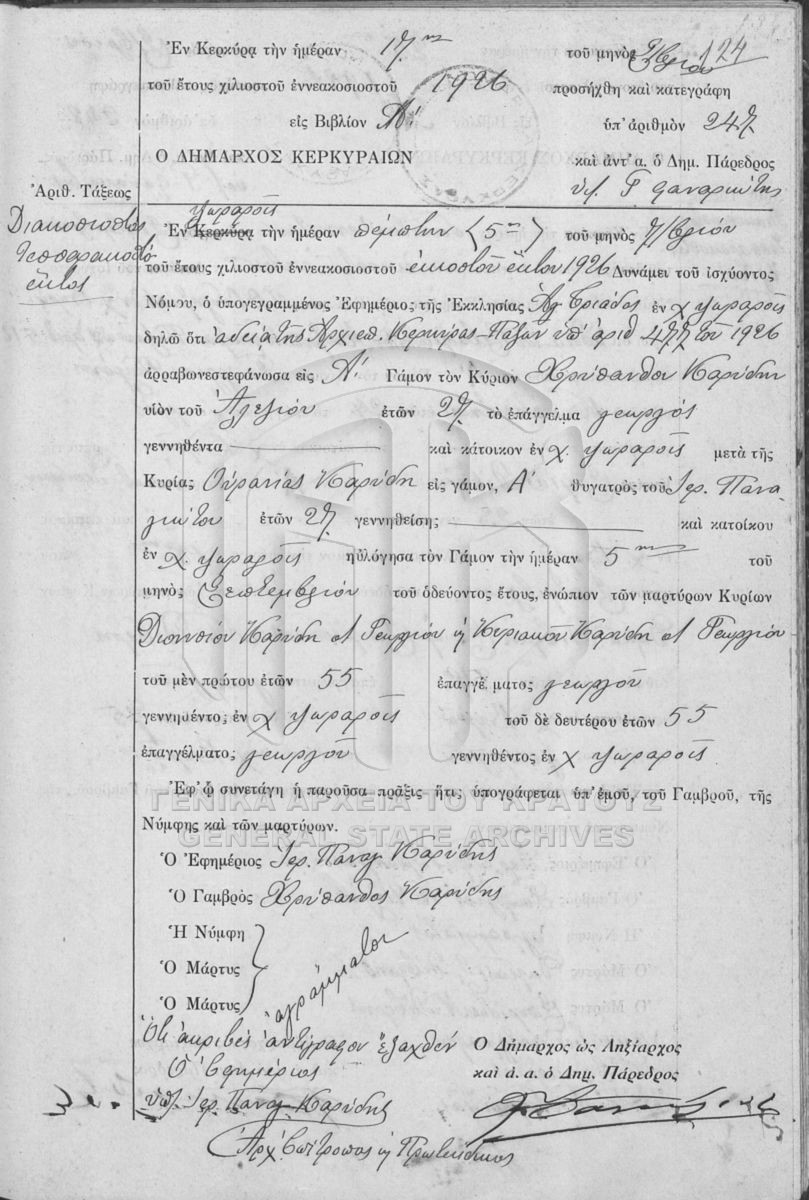 124
Ἐν Κερκύρᾳ τὴν ἡμέραν 17ην τοῦ μηνὸς 7βρίου
τοῦ ἔτους χιλιοστοῦ ἐννεακοσιοστοῦ 1926 προσήχθη καὶ κατεγράφη
εἰς Βιβλίον Α΄ ὑπ' ἀριθμὸν 247
Ο ΔΗΜΑΡΧΟΣ ΚΕΡΚΥΡΑΙΩΝ καὶ ἀντ' α. ὁ Δημ. Πάρεδρος
Ἀριθ. Τάξεως
Διακοσιοστὸς
τεσσαρακοστὸ
ἕκτος
Ψωραροῖς
Ἐν Κερκύρᾳ τὴν ἡμέραν πέμπτην (5ην) τοῦ μηνὸς 7/βρίου
τοῦ ἔτους χιλιοστοῦ ἐννεακοσιοστοῦ εἰκοστοῦ ἕκτου 1926 Δυνάμει τοῦ ἰσχύοντος
Νόμου, ὁ ὑπογεγραμμένος Ἐφημέριος τῆς Ἐκκλησίας Ἁγ Τριάδος ἐν χ Ψωραροῖς
δηλῶ ὅτι ἀδείᾳ τῆς Ἀρχιεπ. Κερκύρας-Παξῶν ὑπ' ἀριθ 477 τοῦ 1926
ἀρραβωνεστεφάνωσα εἰς Α΄ Γάμον τὸν Κύριον Χρύσανθον Καρύδην
υἱὸν τοῦ Ἀλεξίου ἐτῶν 27 τὸ ἐπάγγελμα γεωργός
γεννηθέντα καὶ κάτοικον ἐν χ. Ψωραροῖς μετὰ τῆς
Κυρίας Οὐρανίας Καρύδη εἰς γάμον, Α΄ θυγατρὸς τοῦ Ἱερ. Πανα-
γιώτου ἐτῶν 27 γεννηθείσης καὶ κατοίκου
ἐν χ. Ψωραροῖς ηὐλόγησα τὸν Γάμον τὴν ἡμέραν 5ην τοῦ
μηνὸς Σεπτεμβρίου τοῦ ὁδεύοντος ἔτους, ἐνώπιον τῶν μαρτύρων Κυρίων
Διονυσίου Καρύδη Γεωργίου ἢ Κυριακοῦ Καρύδη Γεωργίου
τοῦ μὲν πρώτου ἐτῶν 55 ἐπαγγέλματος γεωργοῦ
γεννηθέντος ἐν χ Ψωραροῖς τοῦ δὲ δευτέρου ἐτῶν 55
ἐπαγγέλματος γεωργοῦ γεννηθέντος ἐν χ Ψωραροῖς
Ἐφ' ᾧ συνετάγη ἡ παροῦσα πρᾶξις ἥτις ὑπογράφεται ὑπ' ἐμοῦ, τοῦ Γαμβροῦ, τῆς
Νύμφης καὶ τῶν μαρτύρων.
ΓΕΝΙΚΑ ΑΡΧΕΙΑ ΤΟΥ ΚΡΑΤΟΥΣ
GENERAL STATE ARCHIVES
Ὁ Ἐφημέριος Ἱερ. Παναγ Καρύδης
Ὁ Γαμβρὸς Χρύσανθος Καρύδης
Ἡ Νύμφη
Ὁ Μάρτυς
Ὁ Μάρτυς
ἀγράμματοι
Ὅτι ἀκριβὲς ἀντίγραφον ἐξαχθέν
Ὁ Ἐφημέριος
ὑπ. Ἱερ. Παναγ Καρύδης
Ὁ Δήμαρχος ὡς Ληξίαρχος
καὶ ἀ. α. ὁ Δημ. Πάρεδρος